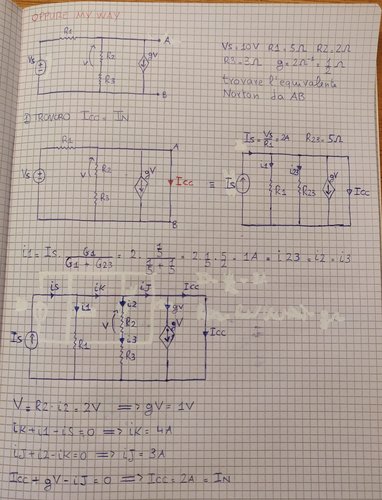 OPPURE MY WAY
R1
A
Vs
V
R2
R3
gV
B
Vs = 10V R1 = 5Ω R2 = 2Ω
R3 = 3Ω g = 2Ω⁻¹ = 1/2 Ω
trovare l'equivalente
Norton da AB
1) TROVARO Icc = IN
R1
A
Vs
V
R2
R3
gV
Icc
B
≡
Is = Vs/R1 = 2A R23 = 5Ω
Is
i1
R1
i23
R23
gV
Icc
i1 = Is · G1/(G1 + G23) = 2 · (1/5)/(1/5 + 1/5) = 2 · 1/5 · 5/2 = 1A = i23 = i2 = i3
is
iK
iJ
Icc
i1
i2
gV
Is
R1
V
R2
i3
R3
gV
Icc
V = R2 · i2 = 2V ⟹ gV = 1V
iK + i1 - iS = 0 ⟹ iK = 4A
iJ + i2 - iK = 0 ⟹ iJ = 3A
Icc + gV - iJ = 0 ⟹ Icc = 2A = IN